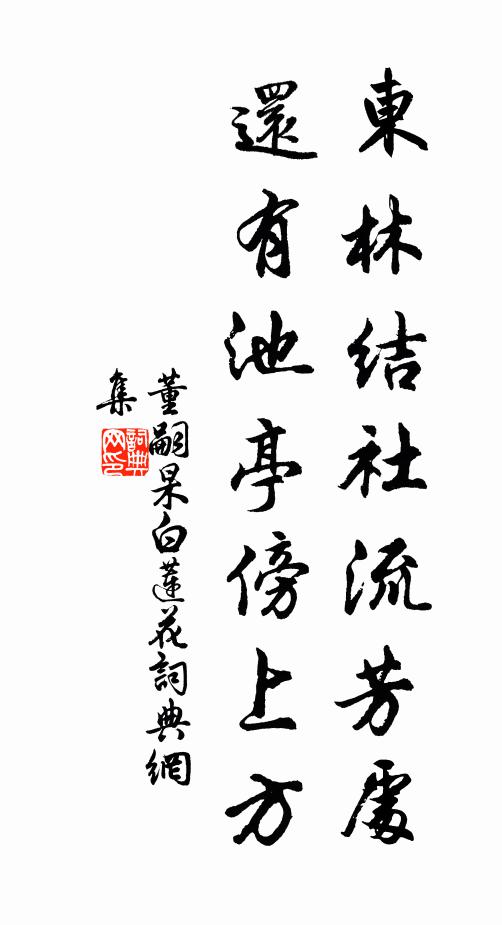 東林結社流芳處
還有池亭傍上方
董嗣杲白蓮花詞典網
集
詞典網印